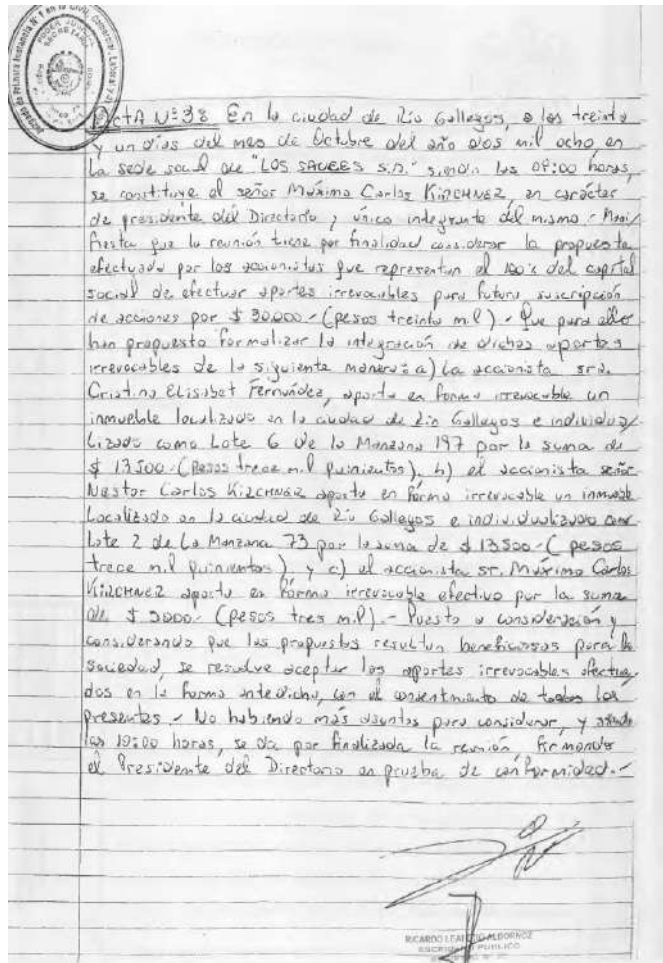 Juzgado de Primera Instancia Nº 1 en lo Civil, Comercial, Laboral y de
PODER JUDICIAL
SECRETARIA
Acta Nº 38 En la ciudad de Río Gallegos, a los treinta
y un días del mes de Octubre del año dos mil ocho, en
la sede social de "LOS SAUCES S.A." siendo las 09:00 horas,
se constituye el señor Máximo Carlos KIRCHNER, en carácter
de presidente del Directorio y único integrante del mismo.- Mani/
fiesta que la reunión tiene por finalidad considerar la propuesta
efectuada por los accionistas que representan el 100% del capital
social de efectuar aportes irrevocables para futura suscripción
de acciones por $ 30.000.- (pesos treinta mil).- Que para ello
han propuesto formalizar la integración de dichos aportes
irrevocables de la siguiente manera: a) La accionista sra.
Cristina Elisabet Fernández, aporta en forma irrevocable un
inmueble localizado en la ciudad de Río Gallegos e individua/
lizado como Lote 6 de la Manzana 197 por la suma de
$ 13500.- (Pesos trece mil quinientos), b) el accionista señor
Nestor Carlos KIRCHNER aporta en forma irrevocable un inmueble
Localizado en la ciudad de Río Gallegos e individualizado como
Lote 2 de La Manzana 73 por la suma de $ 13.500.- (pesos
trece mil quinientos), y c) el accionista sr. Máximo Carlos
KIRCHNER aporta en forma irrevocable efectivo por la suma
de $ 3000.- (pesos tres mil).- Puesto a consideración y
considerando que las propuestas resultan beneficiosas para la
sociedad, se resuelve aceptar los aportes irrevocables efectua-
dos en la forma antedicha, con el consentimiento de todos los
presentes.- No habiendo más asuntos para considerar, y siendo
las 10:00 horas, se da por finalizada la reunión firmando
el Presidente del Directorio en prueba de conformidad.-
RICARDO LEANDRO ALBORNOZ
ESCRIBANO PUBLICO